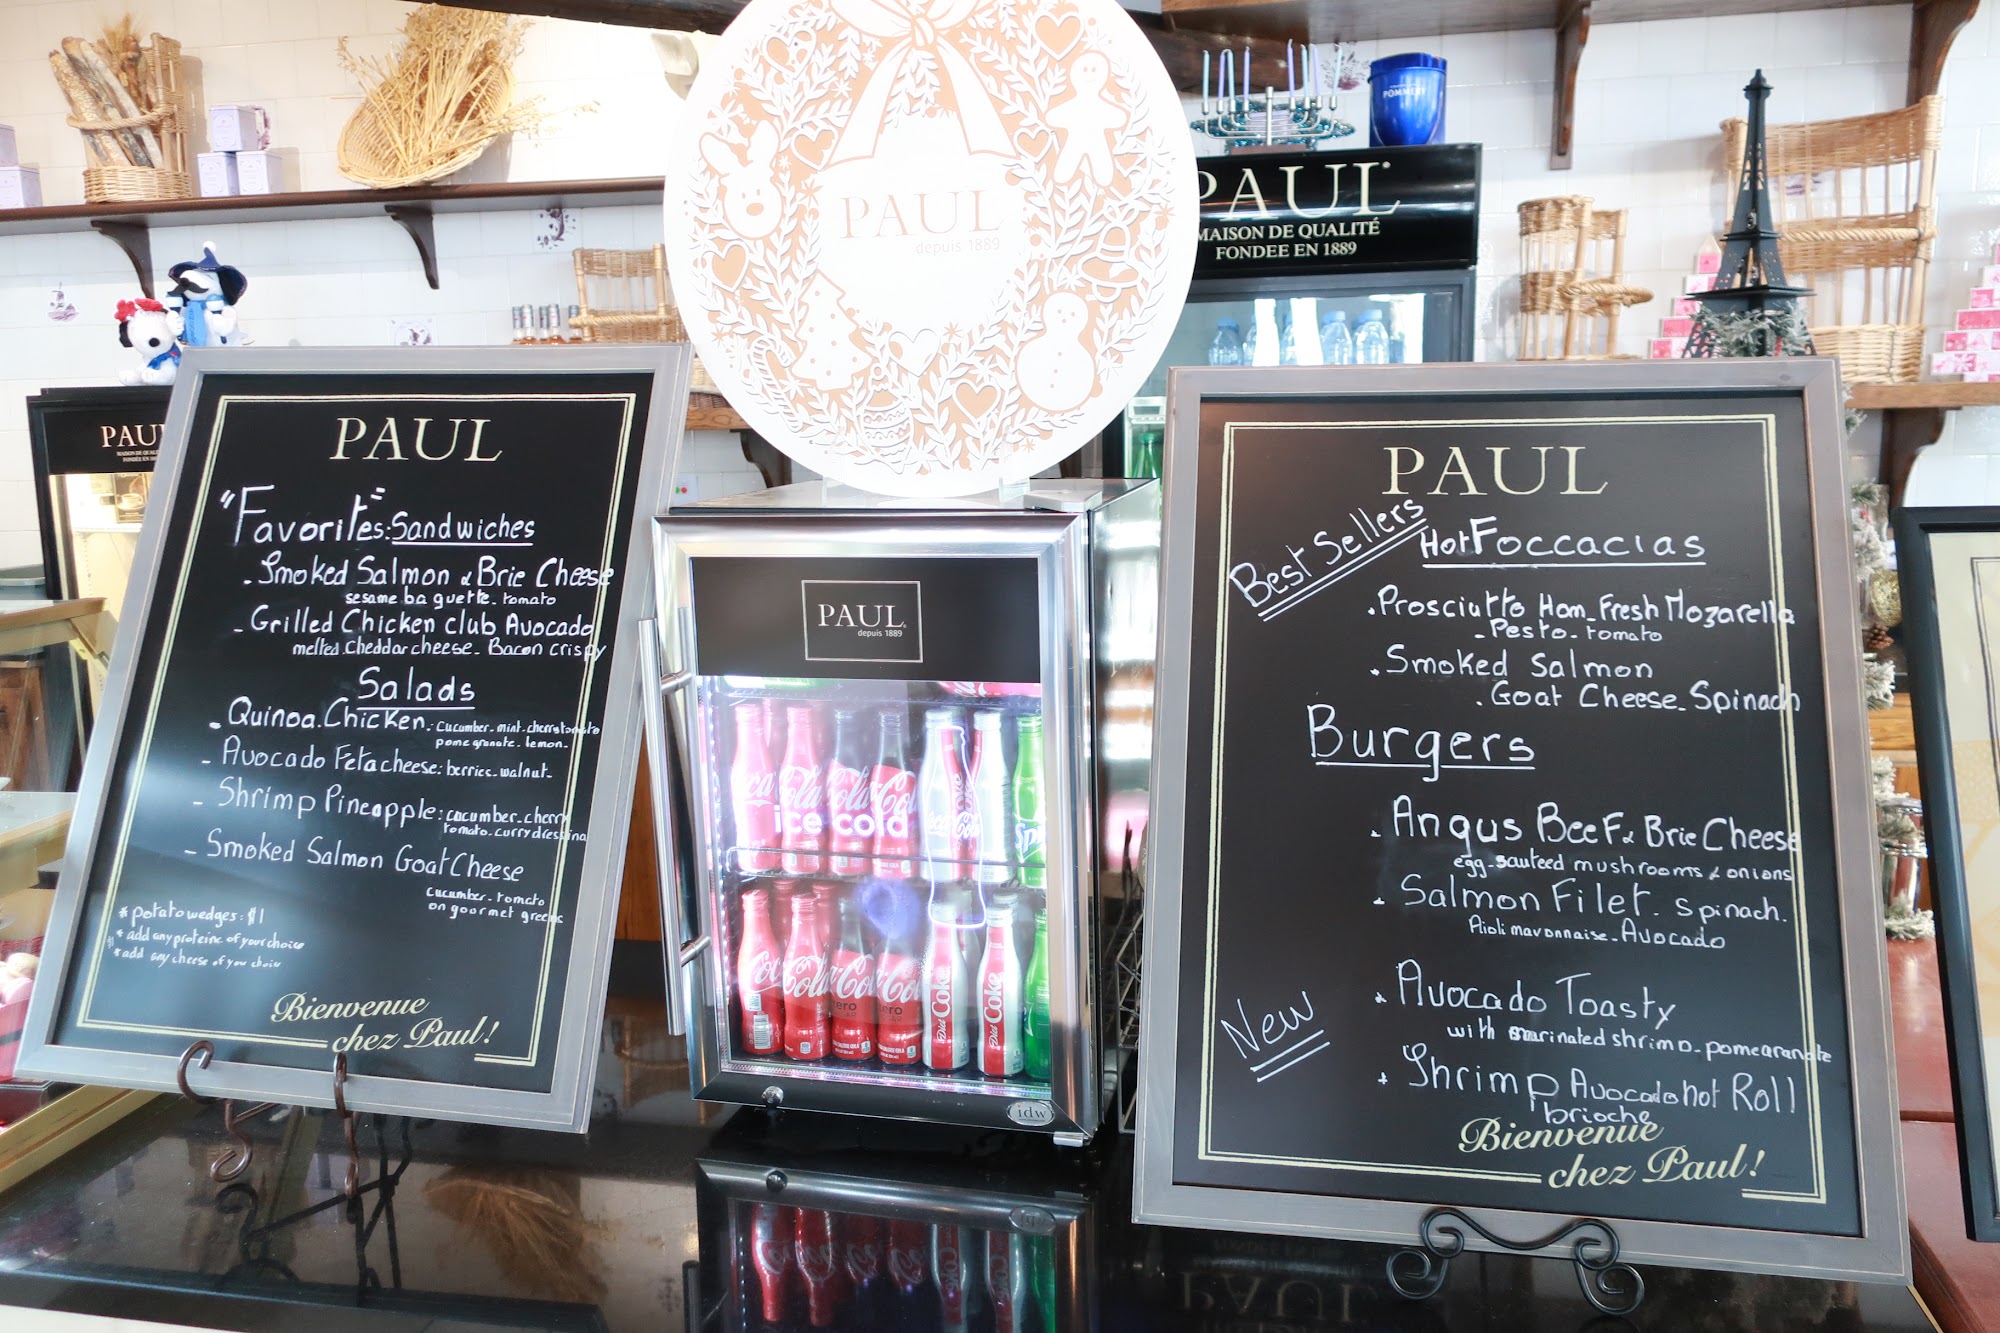 PAUL
"Favorites": Sandwiches
- Smoked Salmon & Brie Cheese
sesame baguette - tomato
- Grilled Chicken club Avocado
melted cheddar cheese - Bacon crispy
Salads
- Quinoa. Chicken: cucumber - mint - cherry tomato
pomegranate - lemon -
- Avocado Feta cheese: berries - walnut -
- Shrimp Pineapple: cucumber - cherry
tomato - curry dressing
- Smoked Salmon Goat Cheese
cucumber - tomato
on gourmet greens
* potato wedges: $1
* add any proteine of your choice
* add any cheese of your choice
Bienvenue
chez Paul!
PAUL
depuis 1889
PAUL
MAISON DE QUALITÉ
FONDEE EN 1889
POMMERY
PAUL
MAISON DE QUAL
FONDÉE EN 18
PAUL
depuis 1889
Coca Cola
ice cold
Diet Coke
Sprite
Coca Cola
zero
zero
Diet Coke
Coke
idw
PAUL
Best Sellers
Hot Foccacias
. Prosciutto Ham - Fresh Mozarella
- Pesto - tomato
. Smoked Salmon
. Goat Cheese - Spinach
Burgers
. Angus Beef & Brie Cheese
egg - sauteed mushrooms & onions
. Salmon Filet - Spinach.
Aioli mayonnaise - Avocado
New
. Avocado Toasty
with marinated shrimp - pomegranate
. Shrimp Avocado Hot Roll
brioche
Bienvenue
chez Paul!